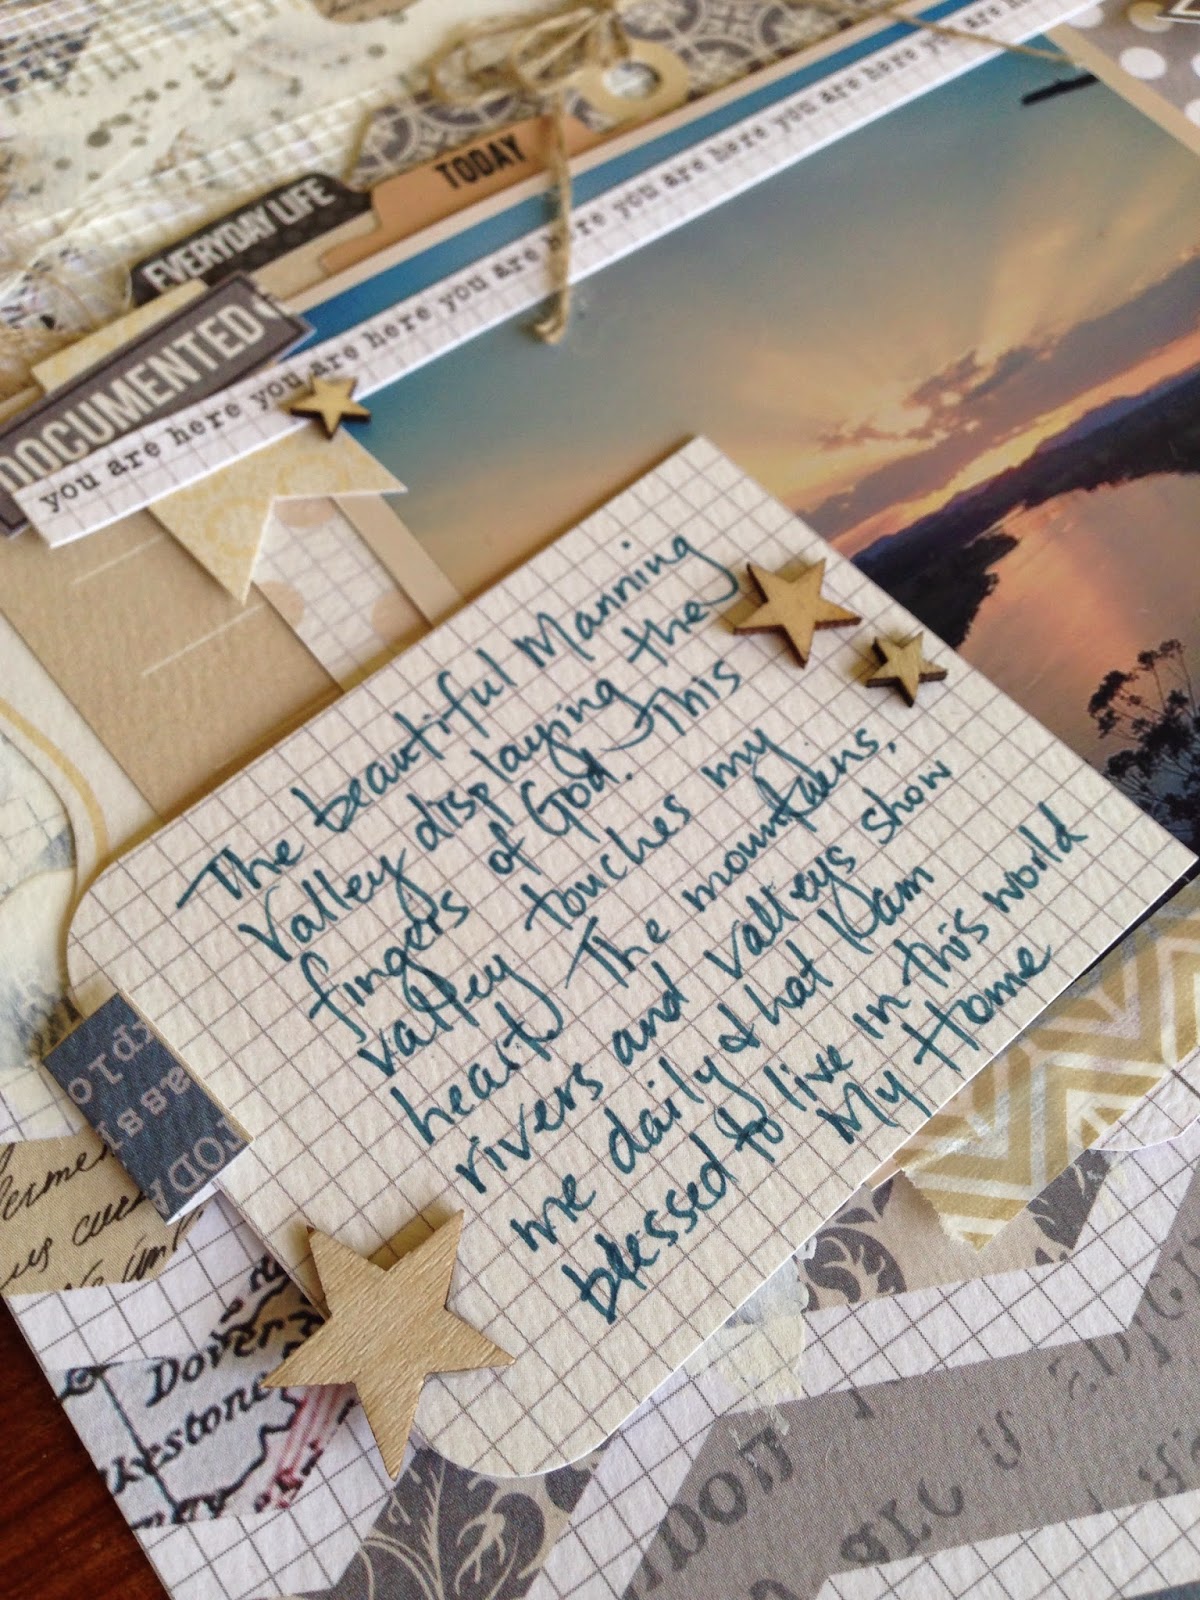 TODAY
EVERYDAY LIFE
DOCUMENTED
you are here you are here you are here you are here you are here you are here you are here
The beautiful Manning
Valley displaying the
fingers of God. This
valley touches my
heart. The mountains,
rivers and valleys show
me daily & that I am
blessed to live in this world
My Home
TODA
Dover
kestone